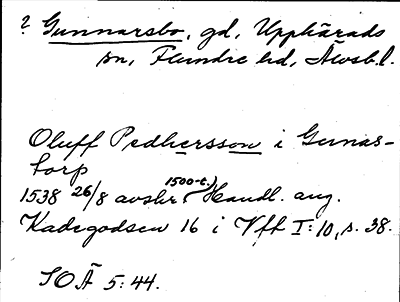 ? Gunnarsbo, gd, Upphärads
sn, Flundre hd, Älvsb.l.
Oluff Pedhersson i Gunas-
torp
1538 26/8 avskr. (1500-t.) Handl. ang.
Kadegodsen 16 i Vft I:10, s. 38.
SOÄ 5:44.